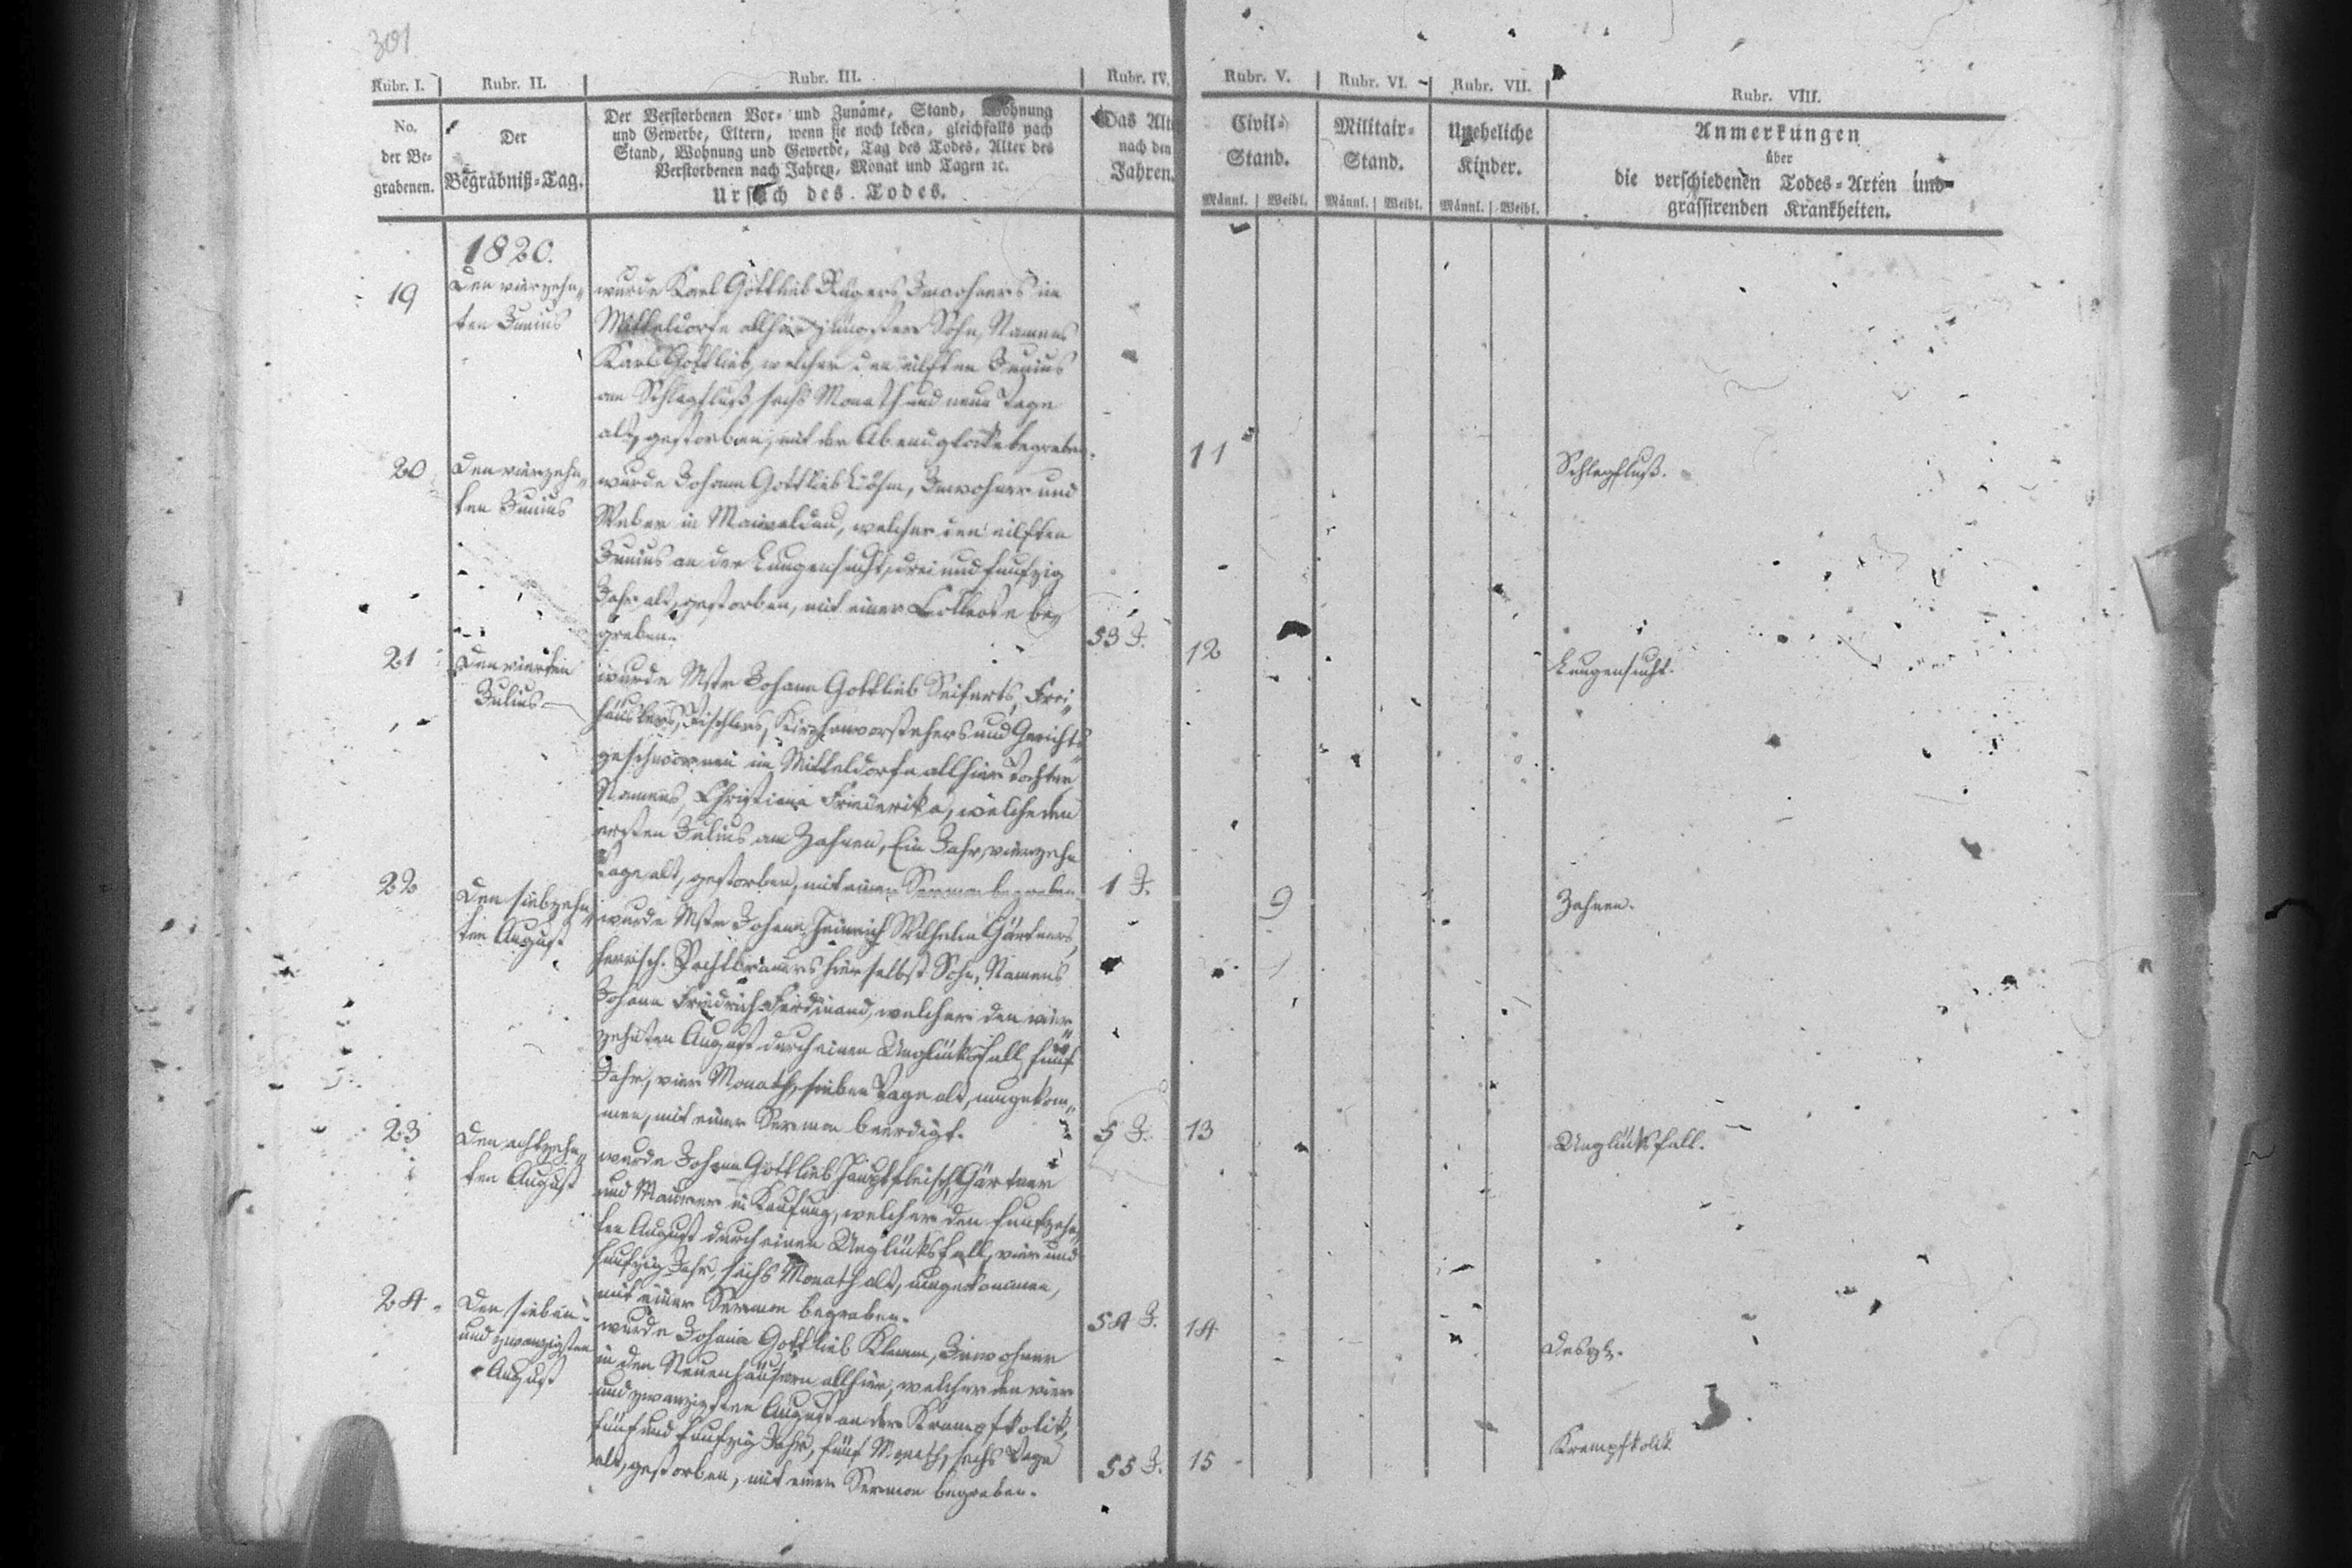 301
Rubr. I.
Rubr. II.
Rubr. III.
Rubr. IV.
Rubr. V.
Rubr. VI.
Rubr. VII.
Rubr. VIII.
No.
der Be-
grabenen.
Der
Begräbniß-Tag.
Der Verstorbenen Vor- und Zunäme, Stand, Wohnung
und Gewerbe, Eltern, wenn sie noch leben, gleichfalls nach
Stand, Wohnung und Gewerbe, Tag des Todes, Alter des
Verstorbenen nach Jahren, Monat und Tagen ꝛc.
Ursach des Todes.
Das Alt
nach den
Jahren.
Civil-
Stand.
Männl. Weibl.
Militair-
Stand.
Männl. Weibl.
Uneheliche
Kinder.
Männl. Weibl.
Anmerkungen
über
die verschiedenen Todes-Arten und
grassirenden Krankheiten.
1820.
19
Den vierzehn-
ten Junius
wurde Karl Gottlieb Rügers, Inwohners im
Mitteldorfe allhier jüngster Sohn, Namens
Karl Gottlieb, welcher den eilften Junius
am Schlagfluß, sechs Monath und neun Tage
alt, gestorben, mit der Abendglocke begraben.
11
Schlagfluß.
20
Den vierzehn-
ten Junius
wurde Johann Gottlieb, Inwohner und
Weber in Maiwaldau, welcher den eilften
Junius an der Lungensucht, drei und funfzig
Jahr alt, gestorben, mit einer Collecte be-
graben.
53 J.
12
Lungensucht.
21
Den vierten
Julius
wurde Mstr Johann Gottlieb Seiferts, Frei-
häuslers, Tischlers, Kirchenvorstehers und Gerichts-
geschwornen im Mitteldorfe allhier Tochter
Namens, Christiane Friederike, welche den
ersten Julius am Zahnen, Ein Jahr, vierzehn
Tage alt, gestorben, mit einer Sermon begraben.
1 J.
9
Zahnen.
22
Den siebzehn-
ten August
wurde Mstr Johann Heinrich Wilhelm Gärtners,
herrsch. Pachtbrauers hierselbst Sohn, Namens
Johann Friedrich Ferdinand, welcher den vier-
zehnten August durch einen Unglücksfall, fünf
Jahr, vier Monath, sieben Tage alt, umgekom-
men, mit einer Sermon beerdigt.
5 J.
13
Unglücksfall.
23
Den achtzehn-
ten August
wurde Johann Gottlieb Hauptfleisch, Gärtner
und Maurer in Kaufung, welcher den funfzehn-
ten August durch einen Unglücksfall, vier und
funfzig Jahr, sechs Monath alt, umgekommen,
mit einer Sermon begraben.
54 J.
14
Desgl.
24
Den sieben-
und zwanzigsten
August
wurde Johann Gottlieb Klemm, Inwohner
in den Neuenhäusern allhier, welcher den vier
und zwanzigsten August an der Krampfkolik,
fünf und funfzig Jahr, fünf Monath, sechs Tage
alt, gestorben, mit einer Sermon begraben.
55 J.
15
Krampfkolik